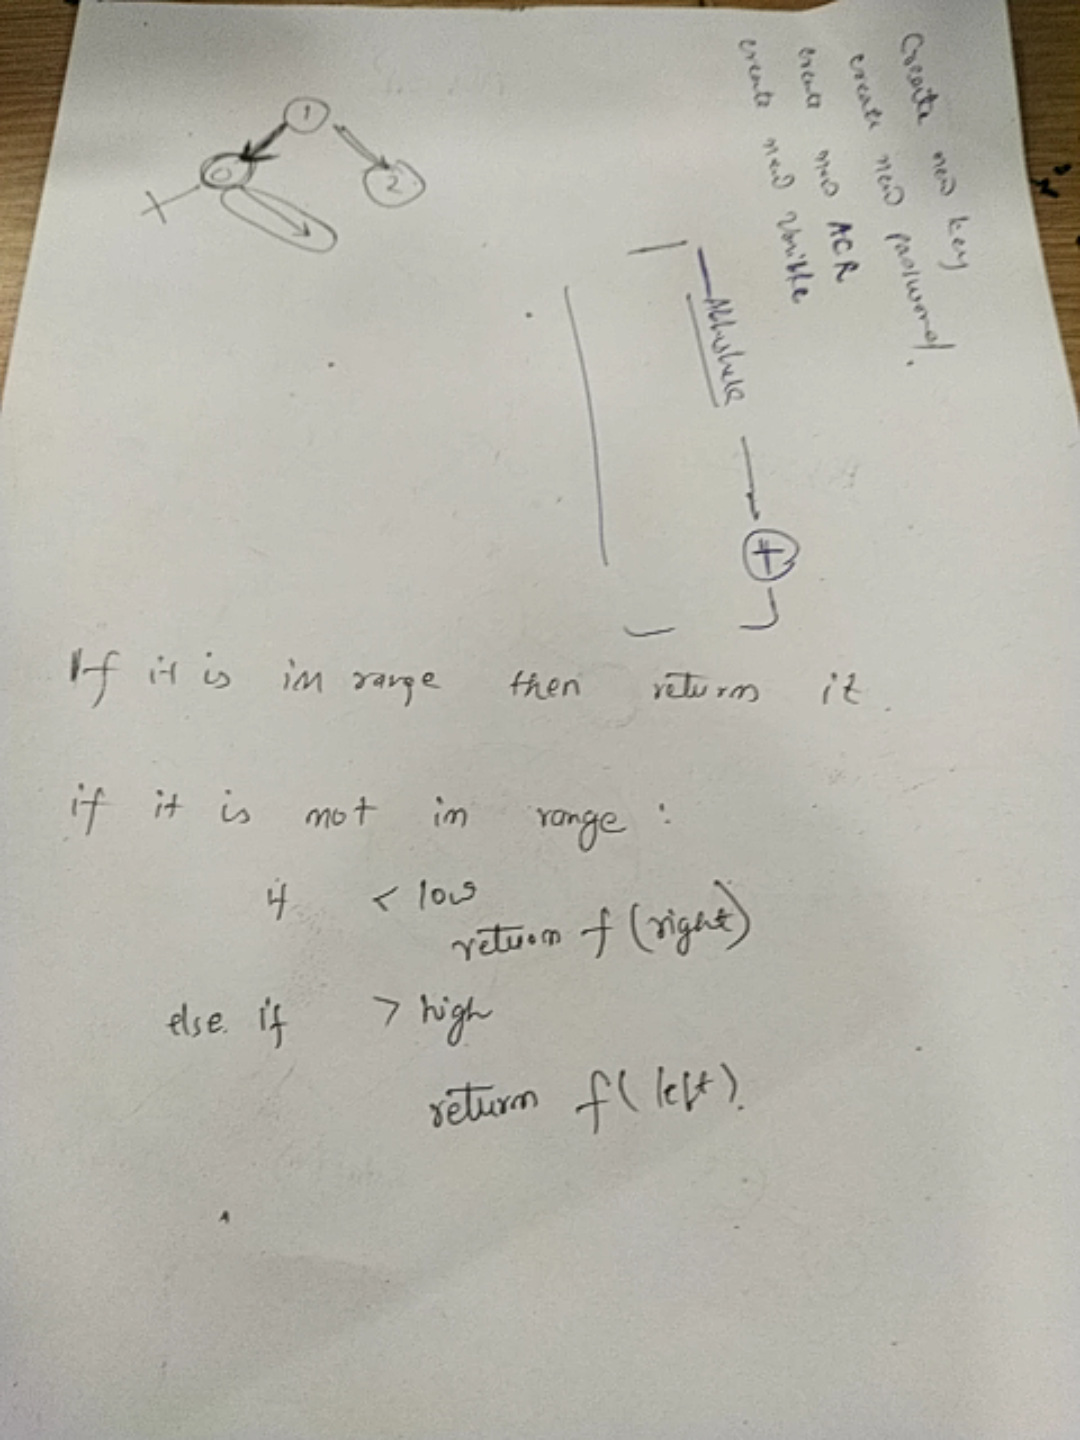 1
0
2
Create new key
create new password.
create new ACR
create new Varible
Abhishek
+
If it is in range then return it.
if it is not in range :
if < low
return f (right)
else if > high
return f( left).